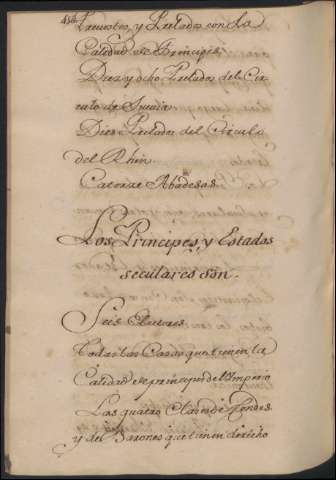 Prevostes, y Prelados con la
Calidad de Principes.
Diez y ocho Prelados del Cir-
culo de Suevia
Diez Prelados del Circulo
del Rhin
Catorze Abadesas.
Los Principes, y Estados
seculares son.
Seis Electores.
Todas las Casas que tienen la
Calidad de principes del Imperio
Las quatro Clases de Condes,
y de Barones que tienen derecho